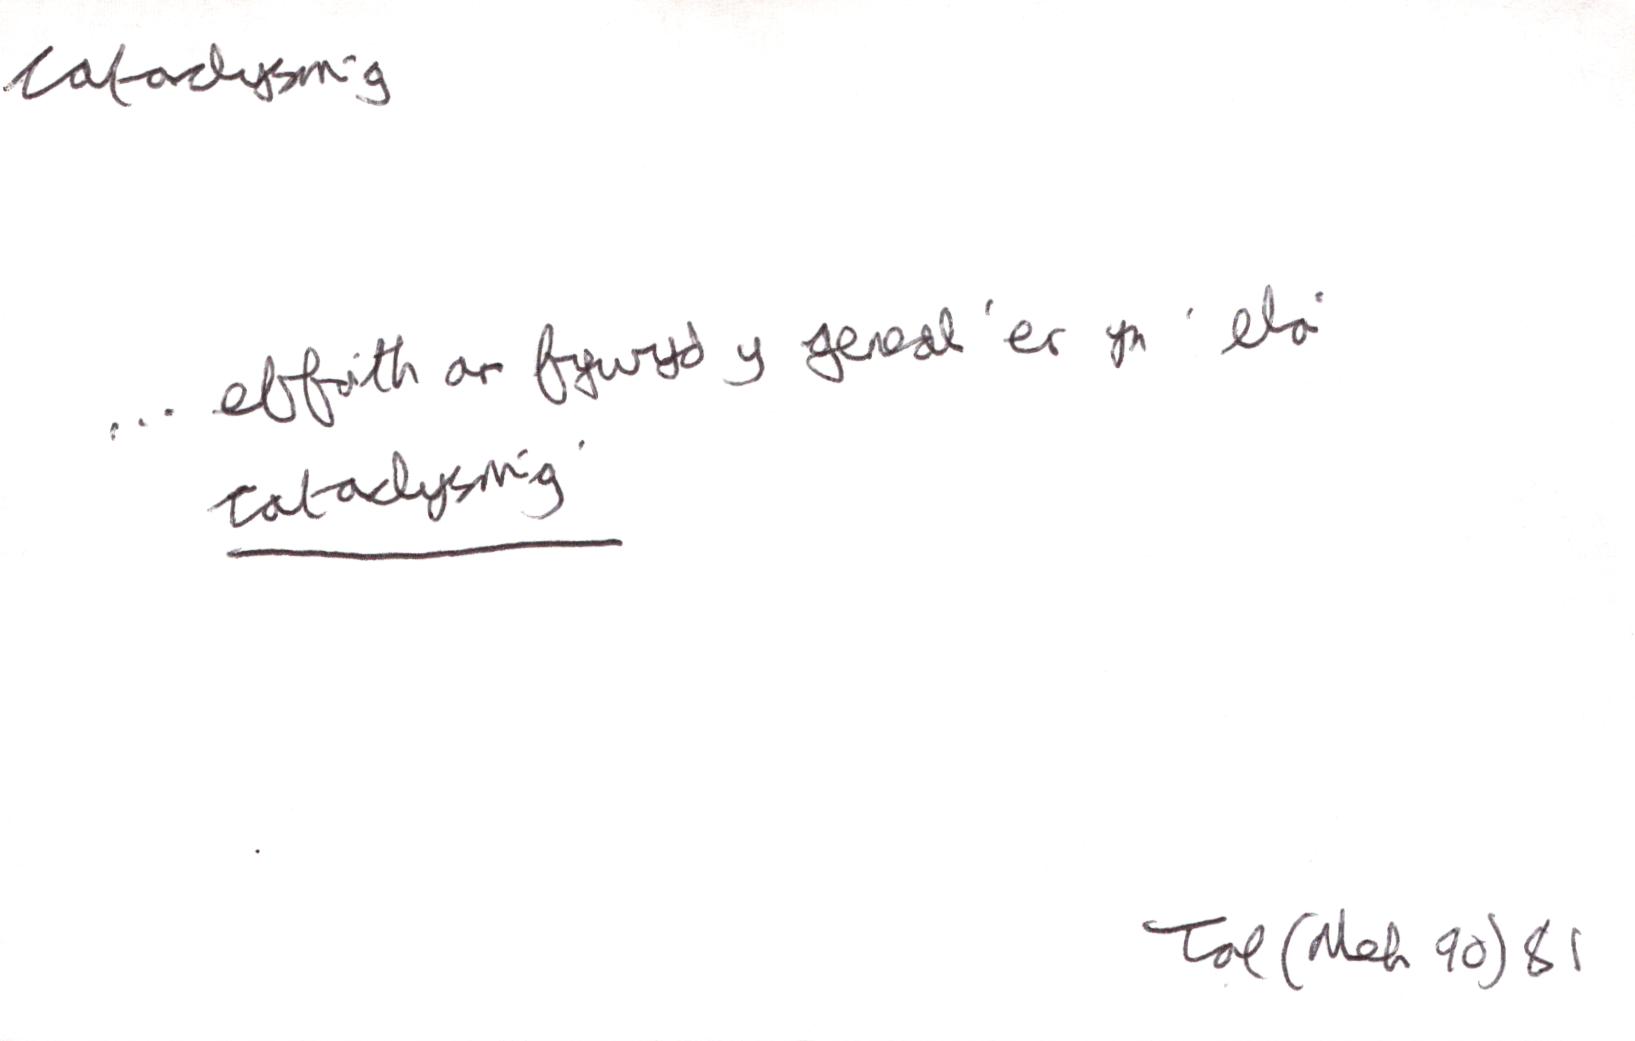 cataclysmig
... effaith ar fywyd y genedl 'er yn' ela'
cataclysmig'
Tal (Meh 90) 81